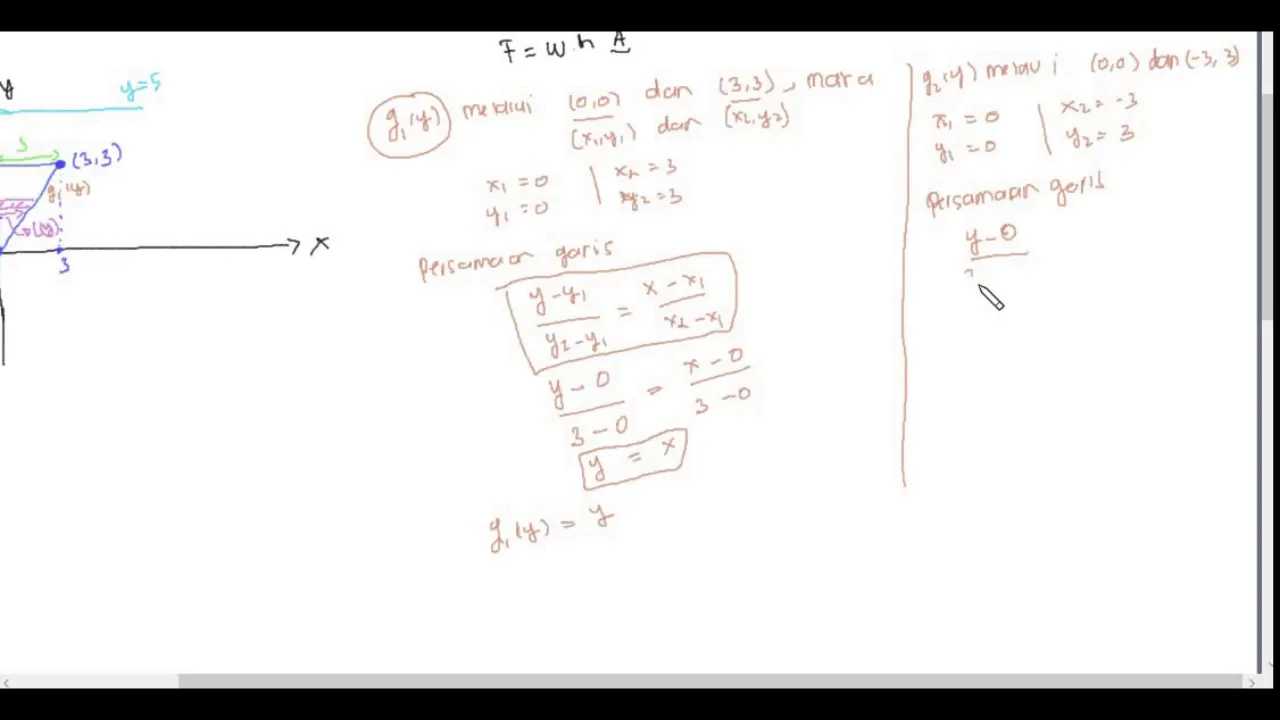 F = w.h A
y
y=5
3
(3,3)
g₁(y)
L(y)
x
3
g₁(y) melalui (0,0) dan (3,3), maka
(x₁,y₁) dan (x₂,y₂)
x₁ = 0 | x₂ = 3
y₁ = 0 | y₂ = 3
Persamaan garis
y-y₁ / y₂-y₁ = x-x₁ / x₂-x₁
y-0 / 3-0 = x-0 / 3-0
y = x
g₁(y) = y
g₂(y) melalui (0,0) dan (-3,3)
x₁ = 0 | x₂ = -3
y₁ = 0 | y₂ = 3
Persamaan garis
y-0